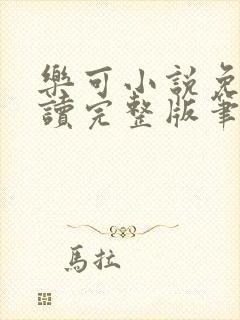 樂可小說免
讀完整版筆
馬拉